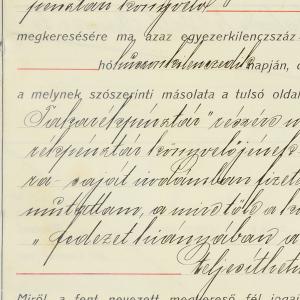 pénztári könyvelő
megkeresésére ma, azaz egyezerkilencszáz
hó huszonkilencedik napján,
a melynek szószerinti másolata a tulsó olda
Takarékpénztár" részére
rékpénztár könyvelőjének
ra saját irodámban fizeté
mutattam, a mire tőle a k
„fedezet hiányában a
teljesíthet
Miről a fent nevezett megkereső fél joga